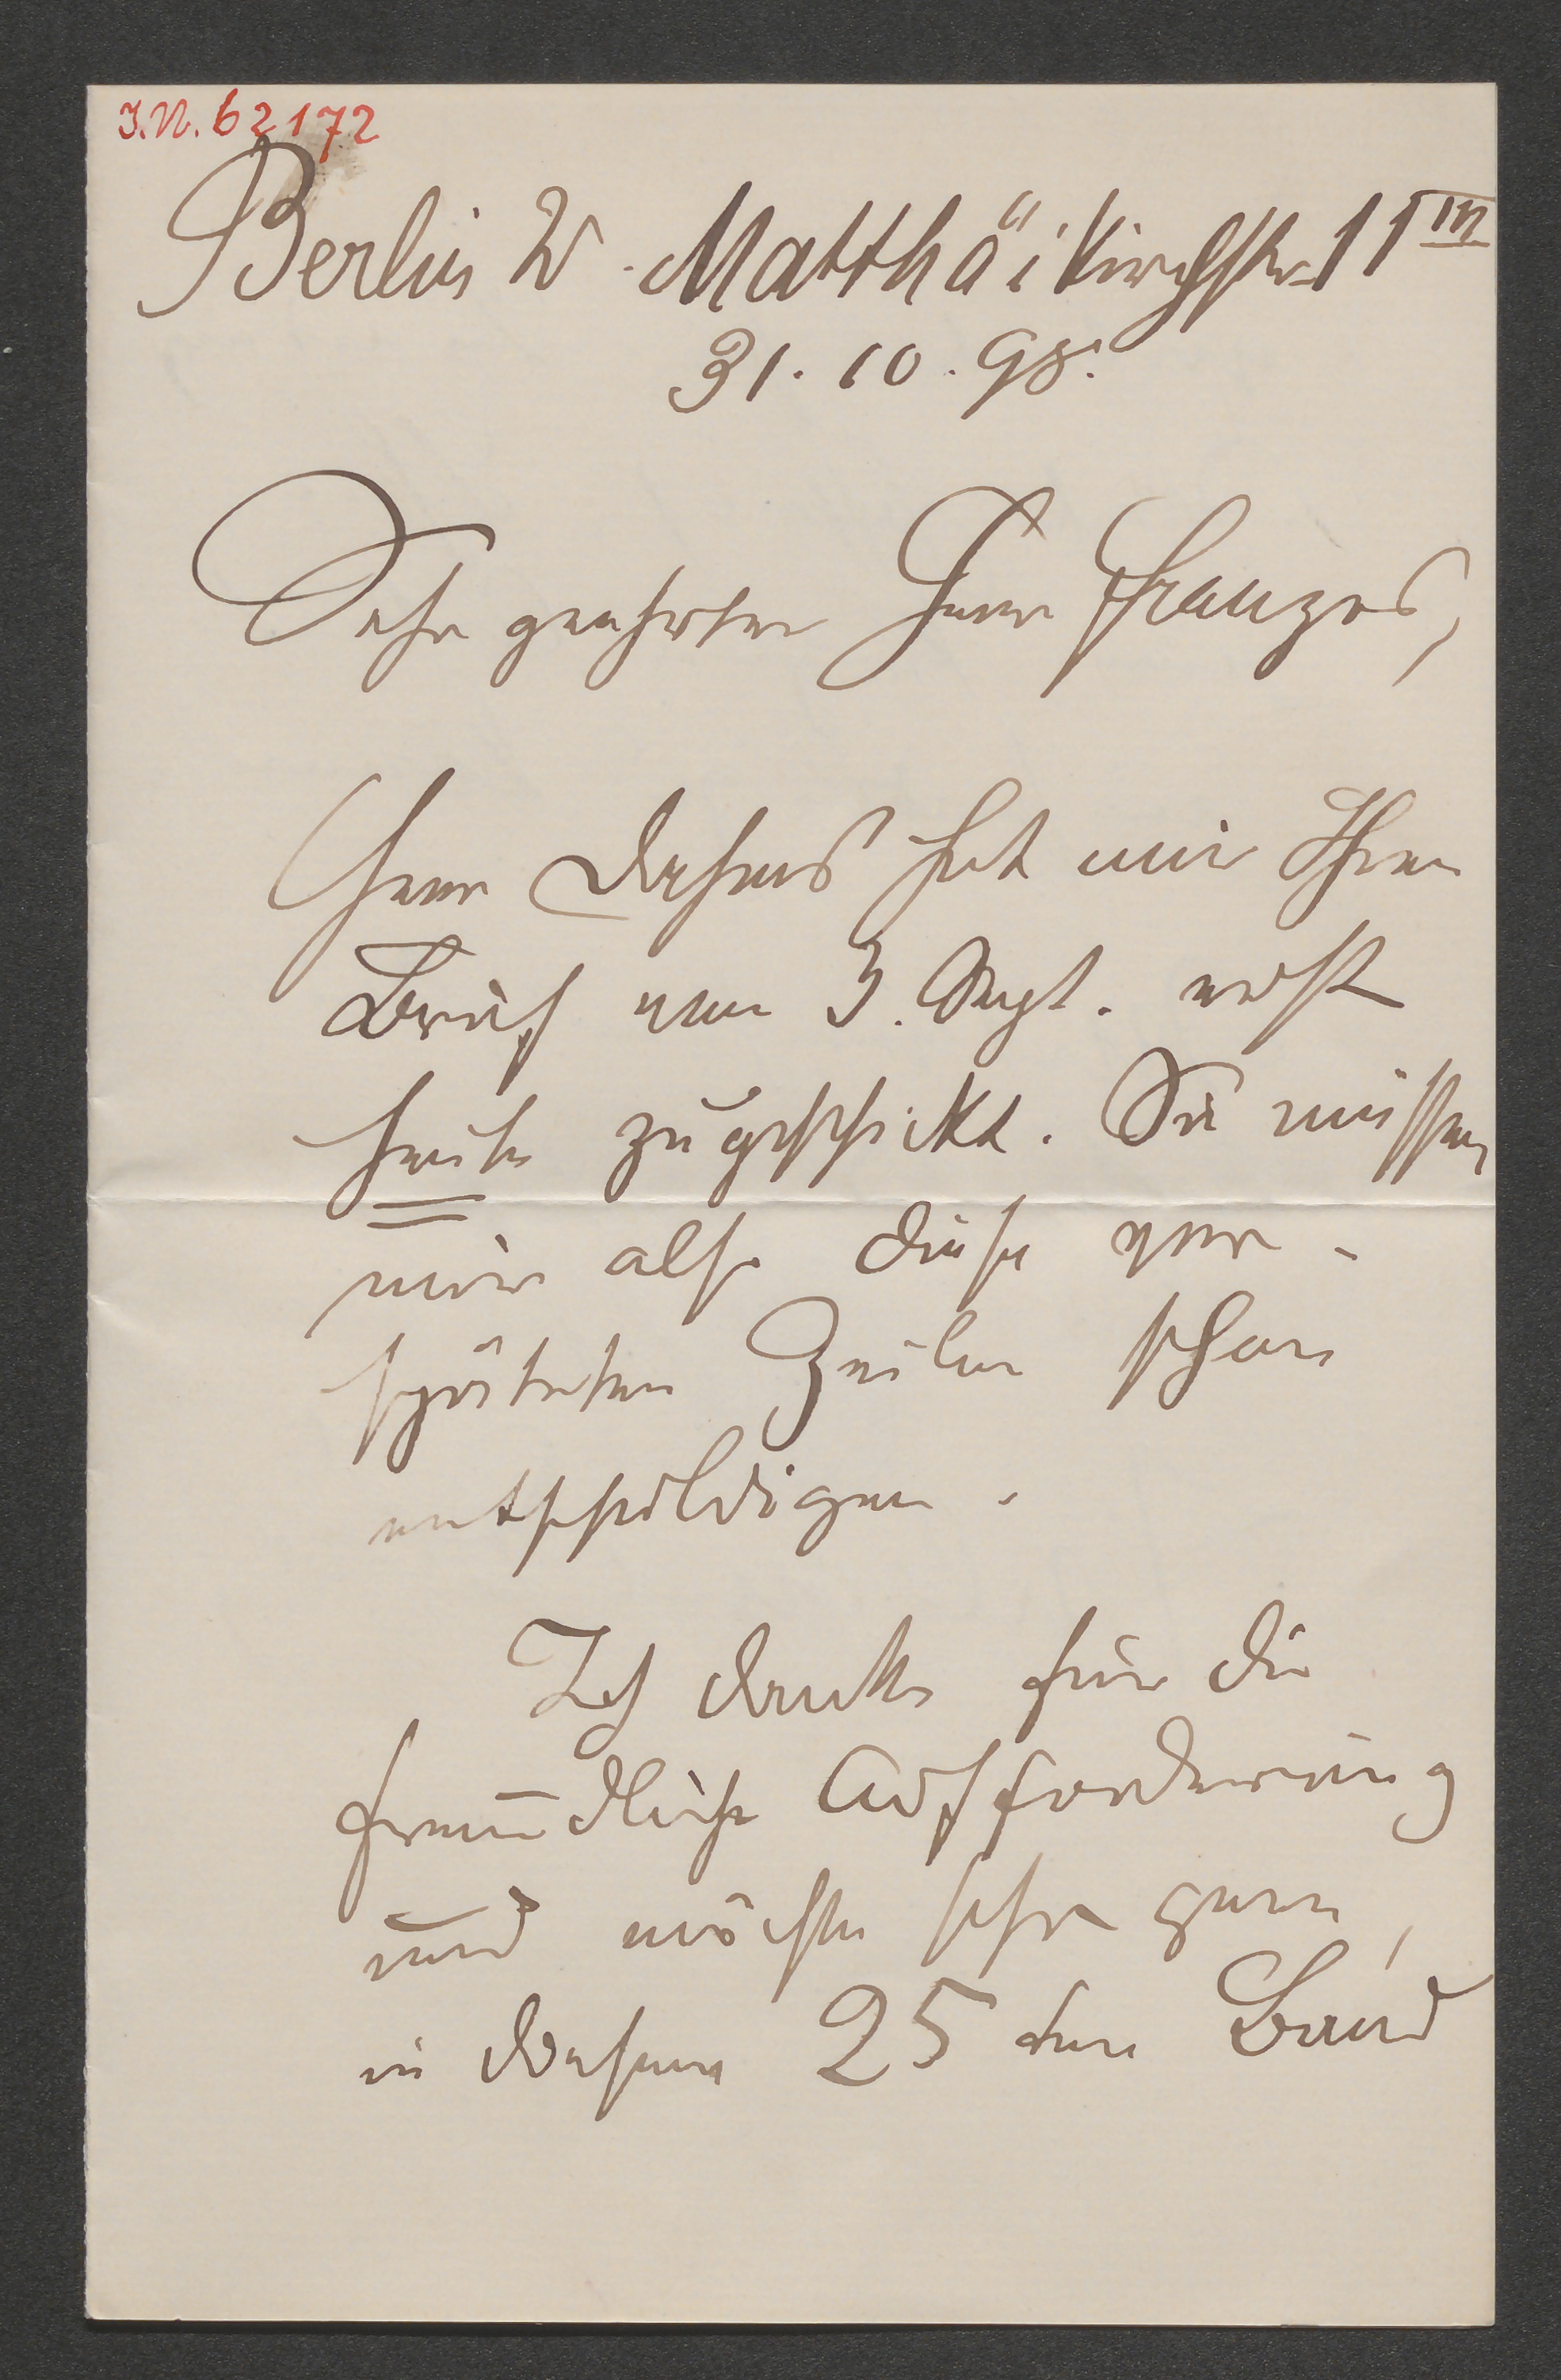 I.N. 62172
Berlin W. Matthäikirchstr. 11 III
31.10.98.
Sehr geehrter Herr Franzos,
Herr hat mir Ihren
Brief vom 3. Sept. erst
heute zugeschickt. Sie müssen
mir also diese ver-
späteten Zeilen schon
entschuldigen.
Ich danke für die
freundliche Aufforderung
und möchte sehr gern,
in 25 ten Band